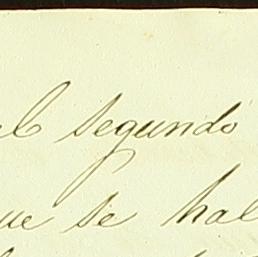 el segundo
que se hal